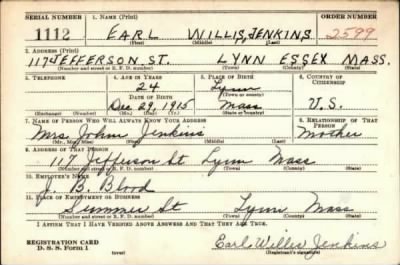 SERIAL NUMBER 1. NAME (Print) ORDER NUMBER
1112 EARL WILLIS JENKINS 2599
(First) (Middle) (Last)
2. ADDRESS (Print)
117 JEFFERSON ST. LYNN ESSEX MASS.
(Number and street or R. F. D. number) (Town) (County) (State)
3. TELEPHONE 4. AGE IN YEARS 5. PLACE OF BIRTH 6. COUNTRY OF CITIZENSHIP
24 Lynn
DATE OF BIRTH (Town or county)
Dec 29, 1915 Mass U.S.
(Exchange) (Number) (Mo.) (Day) (Yr.) (State or country)
7. NAME OF PERSON WHO WILL ALWAYS KNOW YOUR ADDRESS 8. RELATIONSHIP OF THAT PERSON
Mrs John Jenkins Mother
(Mr., Mrs., Miss) (First) (Middle) (Last)
9. ADDRESS OF THAT PERSON
117 Jefferson St Lynn Mass
(Number and street or R. F. D. number) (Town) (County) (State)
10. EMPLOYER'S NAME
J. B. Blood
11. PLACE OF EMPLOYMENT OR BUSINESS
Summer St Lynn Mass
(Number and street or R. F. D. number) (Town) (County) (State)
I AFFIRM THAT I HAVE VERIFIED ABOVE ANSWERS AND THAT THEY ARE TRUE.
REGISTRATION CARD
D. S. S. Form 1 (over) Earl Willis Jenkins
(Registrant's signature)